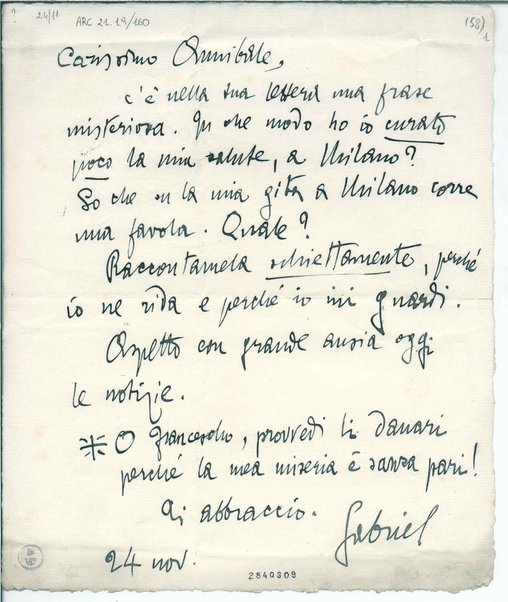 ?
24/11
ARC 21.19/160
(58)
1
Carissimo Annibale,
c'è nella sua lettera una frase
misteriosa. In che modo ho io curato
poco la mia salute, a Milano?
So che su la mia gita a Milano corre
una favola. Quale?
Raccontamela schiettamente, perché
io ne rida e perché io mi guardi.
Aspetto con grande ansia oggi
le notizie.
O Francescho, provvedi li danari
perché la mea miseria è sanza pari!
Ti abbraccio.
Gabriel
24 nov.
2840309